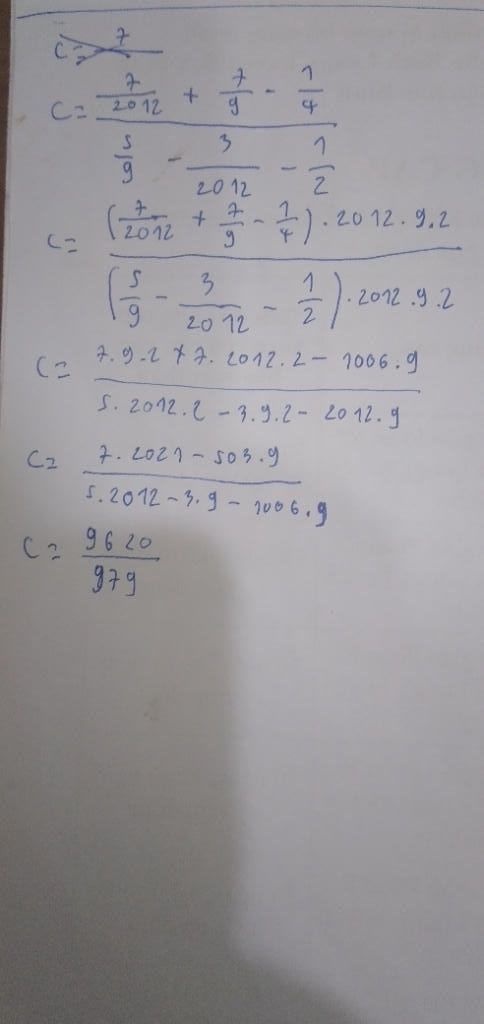 C = 7
C = 7/2012 + 7/9 - 1/4
5/9 - 3/2012 - 1/2
C = (7/2012 + 7/9 - 1/4) . 2012 . 9 . 2
(5/9 - 3/2012 - 1/2) . 2012 . 9 . 2
C = 7 . 9 . 2 + 7 . 2012 . 2 - 1006 . 9
5 . 2012 . 2 - 3 . 9 . 2 - 2012 . 9
C = 7 . 2021 - 503 . 9
5 . 2012 - 3 . 9 - 1006 . 9
C = 9620
979